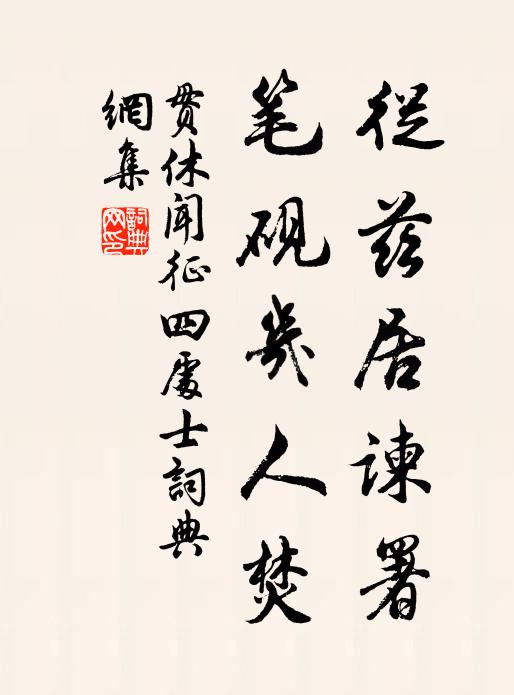 從茲居諫署
笔硯幾人焚
貫休聞征四處士詞典
網集
詞典
网印